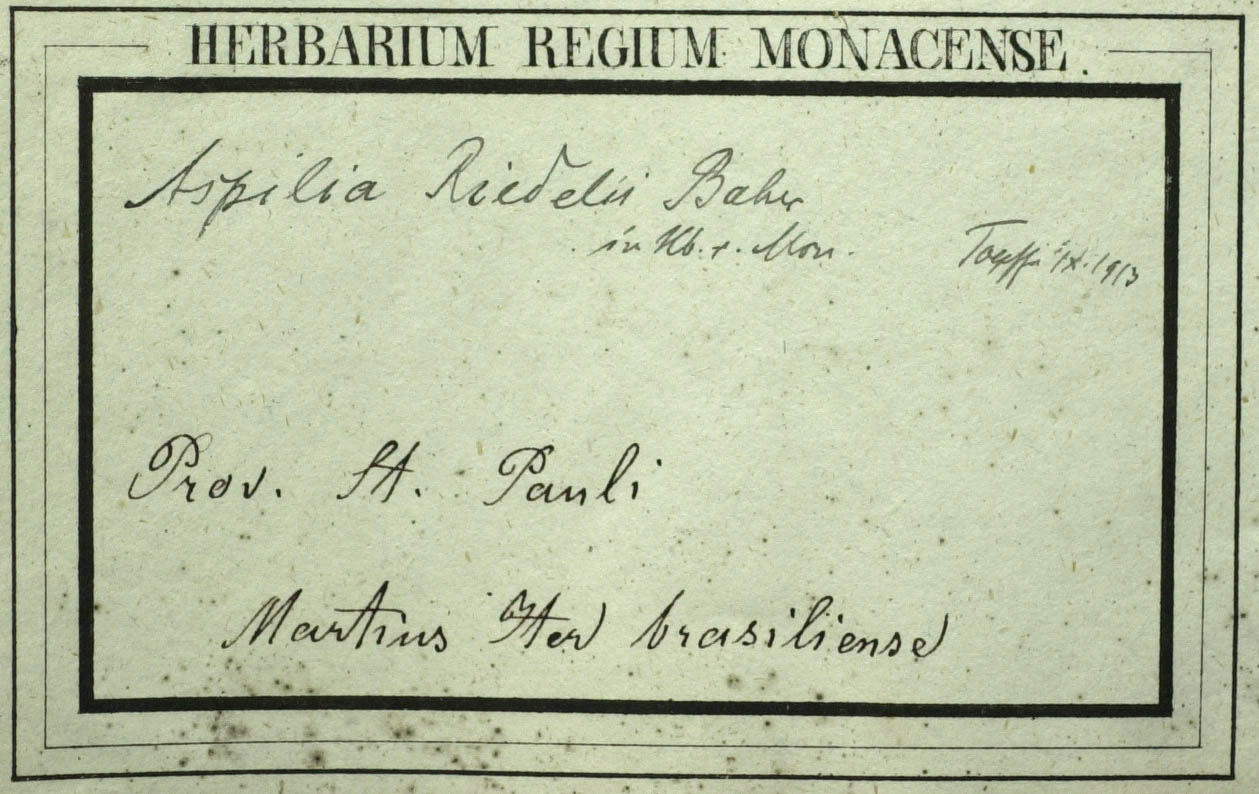 HERBARIUM REGIUM MONACENSE.
Aspilia Riedelii Baker
in Hb. r. Mon.
IX. 1913
Prov. St. Pauli
Martius Iter brasiliense